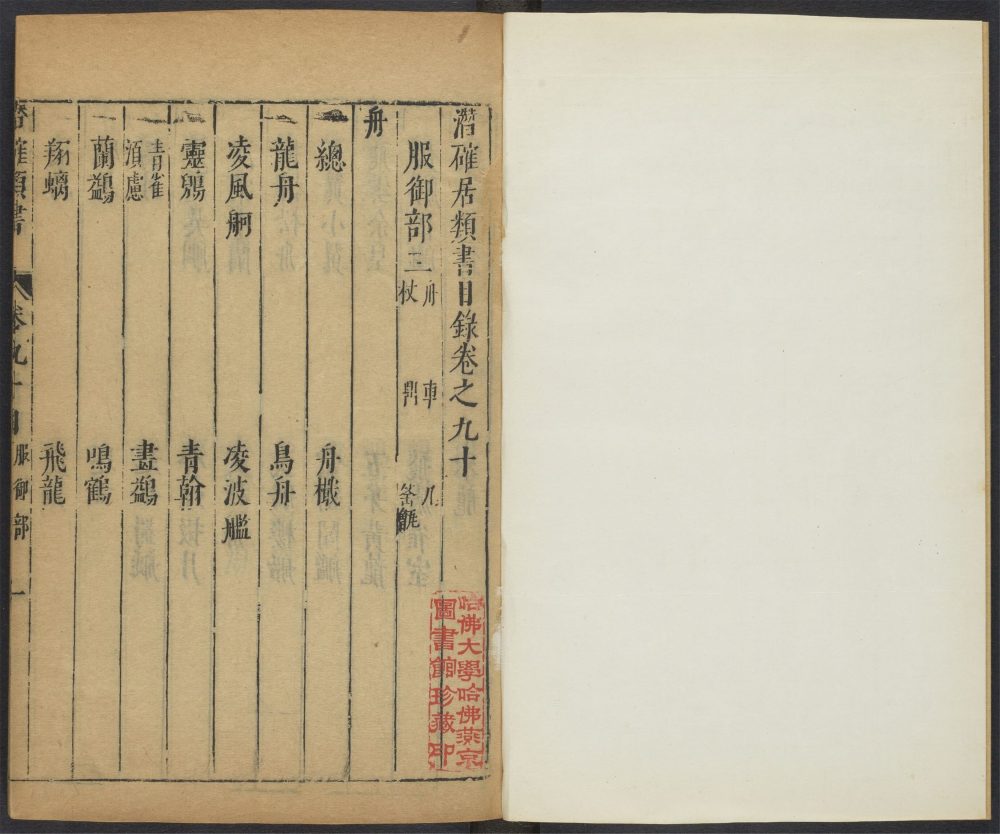 潛確居類書目錄卷之九十
服御部三 舟 車 几 杖 鼎
舟
總 舟檝
龍舟 鳥舟
凌風舸 凌波艦
靈鷁 青翰
青雀 須慮 畫鷁
蘭鷁 鳴鶴
翔螭 飛龍
潛確類書 卷九十目 服御部 一
哈佛大學哈佛燕京
圖書館珍藏印